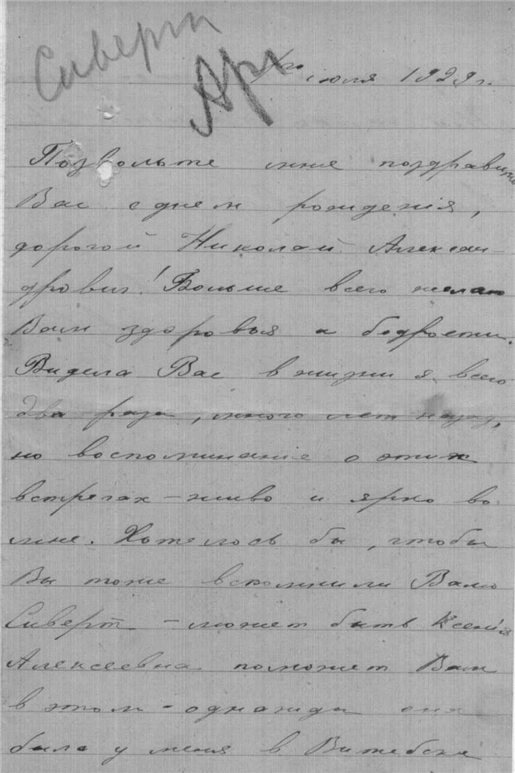 Сиверт
Арх
июля 1929 г.
Позвольте мне поздравить
Вас с днем рождения,
дорогой Николай Алексан-
дрович! Больше всего желаю
Вам здоровья и бодрости.
Видела Вас в жизни я всего
два раза, много лет назад,
но воспоминание о этих
встречах - живо и ярко во
мне. Хотелось бы, чтобы
Вы тоже вспомнили Валю
Сиверт - может быть Ксения
Алексеевна поможет Вам
в этом - однажды она
была у меня в Витебске